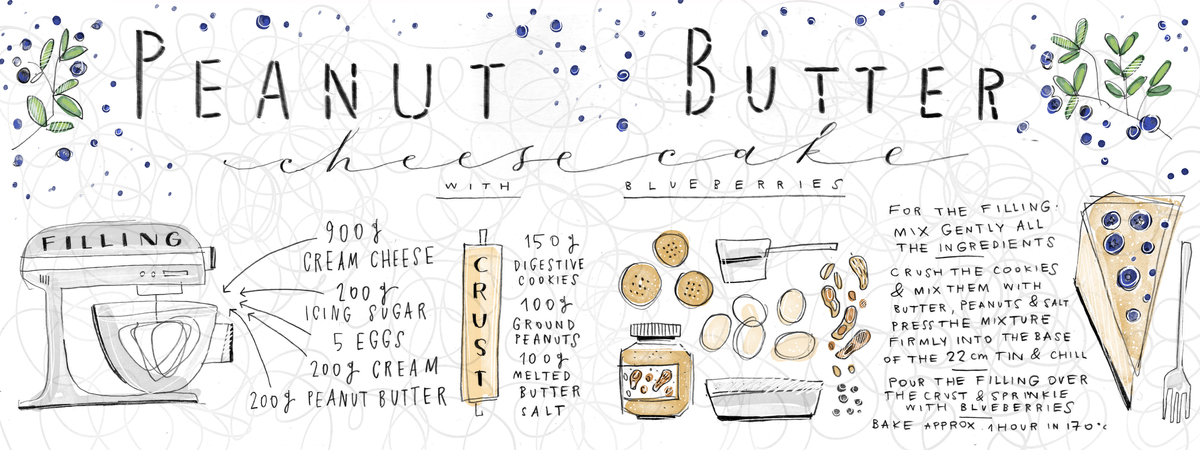 PEANUT BUTTER
cheese cake
WITH BLUEBERRIES
FILLING
900g
CREAM CHEESE
200g
ICING SUGAR
5 EGGS
200g CREAM
200g PEANUT BUTTER
CRUST
150g
DIGESTIVE
COOKIES
100g
GROUND
PEANUTS
100g
MELTED
BUTTER
SALT
FOR THE FILLING:
MIX GENTLY ALL
THE INGREDIENTS
CRUSH THE COOKIES
& MIX THEM WITH
BUTTER, PEANUTS & SALT
PRESS THE MIXTURE
FIRMLY INTO THE BASE
OF THE 22cm TIN & CHILL
POUR THE FILLING OVER
THE CRUST & SPRINKLE
WITH BLUEBERRIES
BAKE APPROX. 1 HOUR IN 170°C